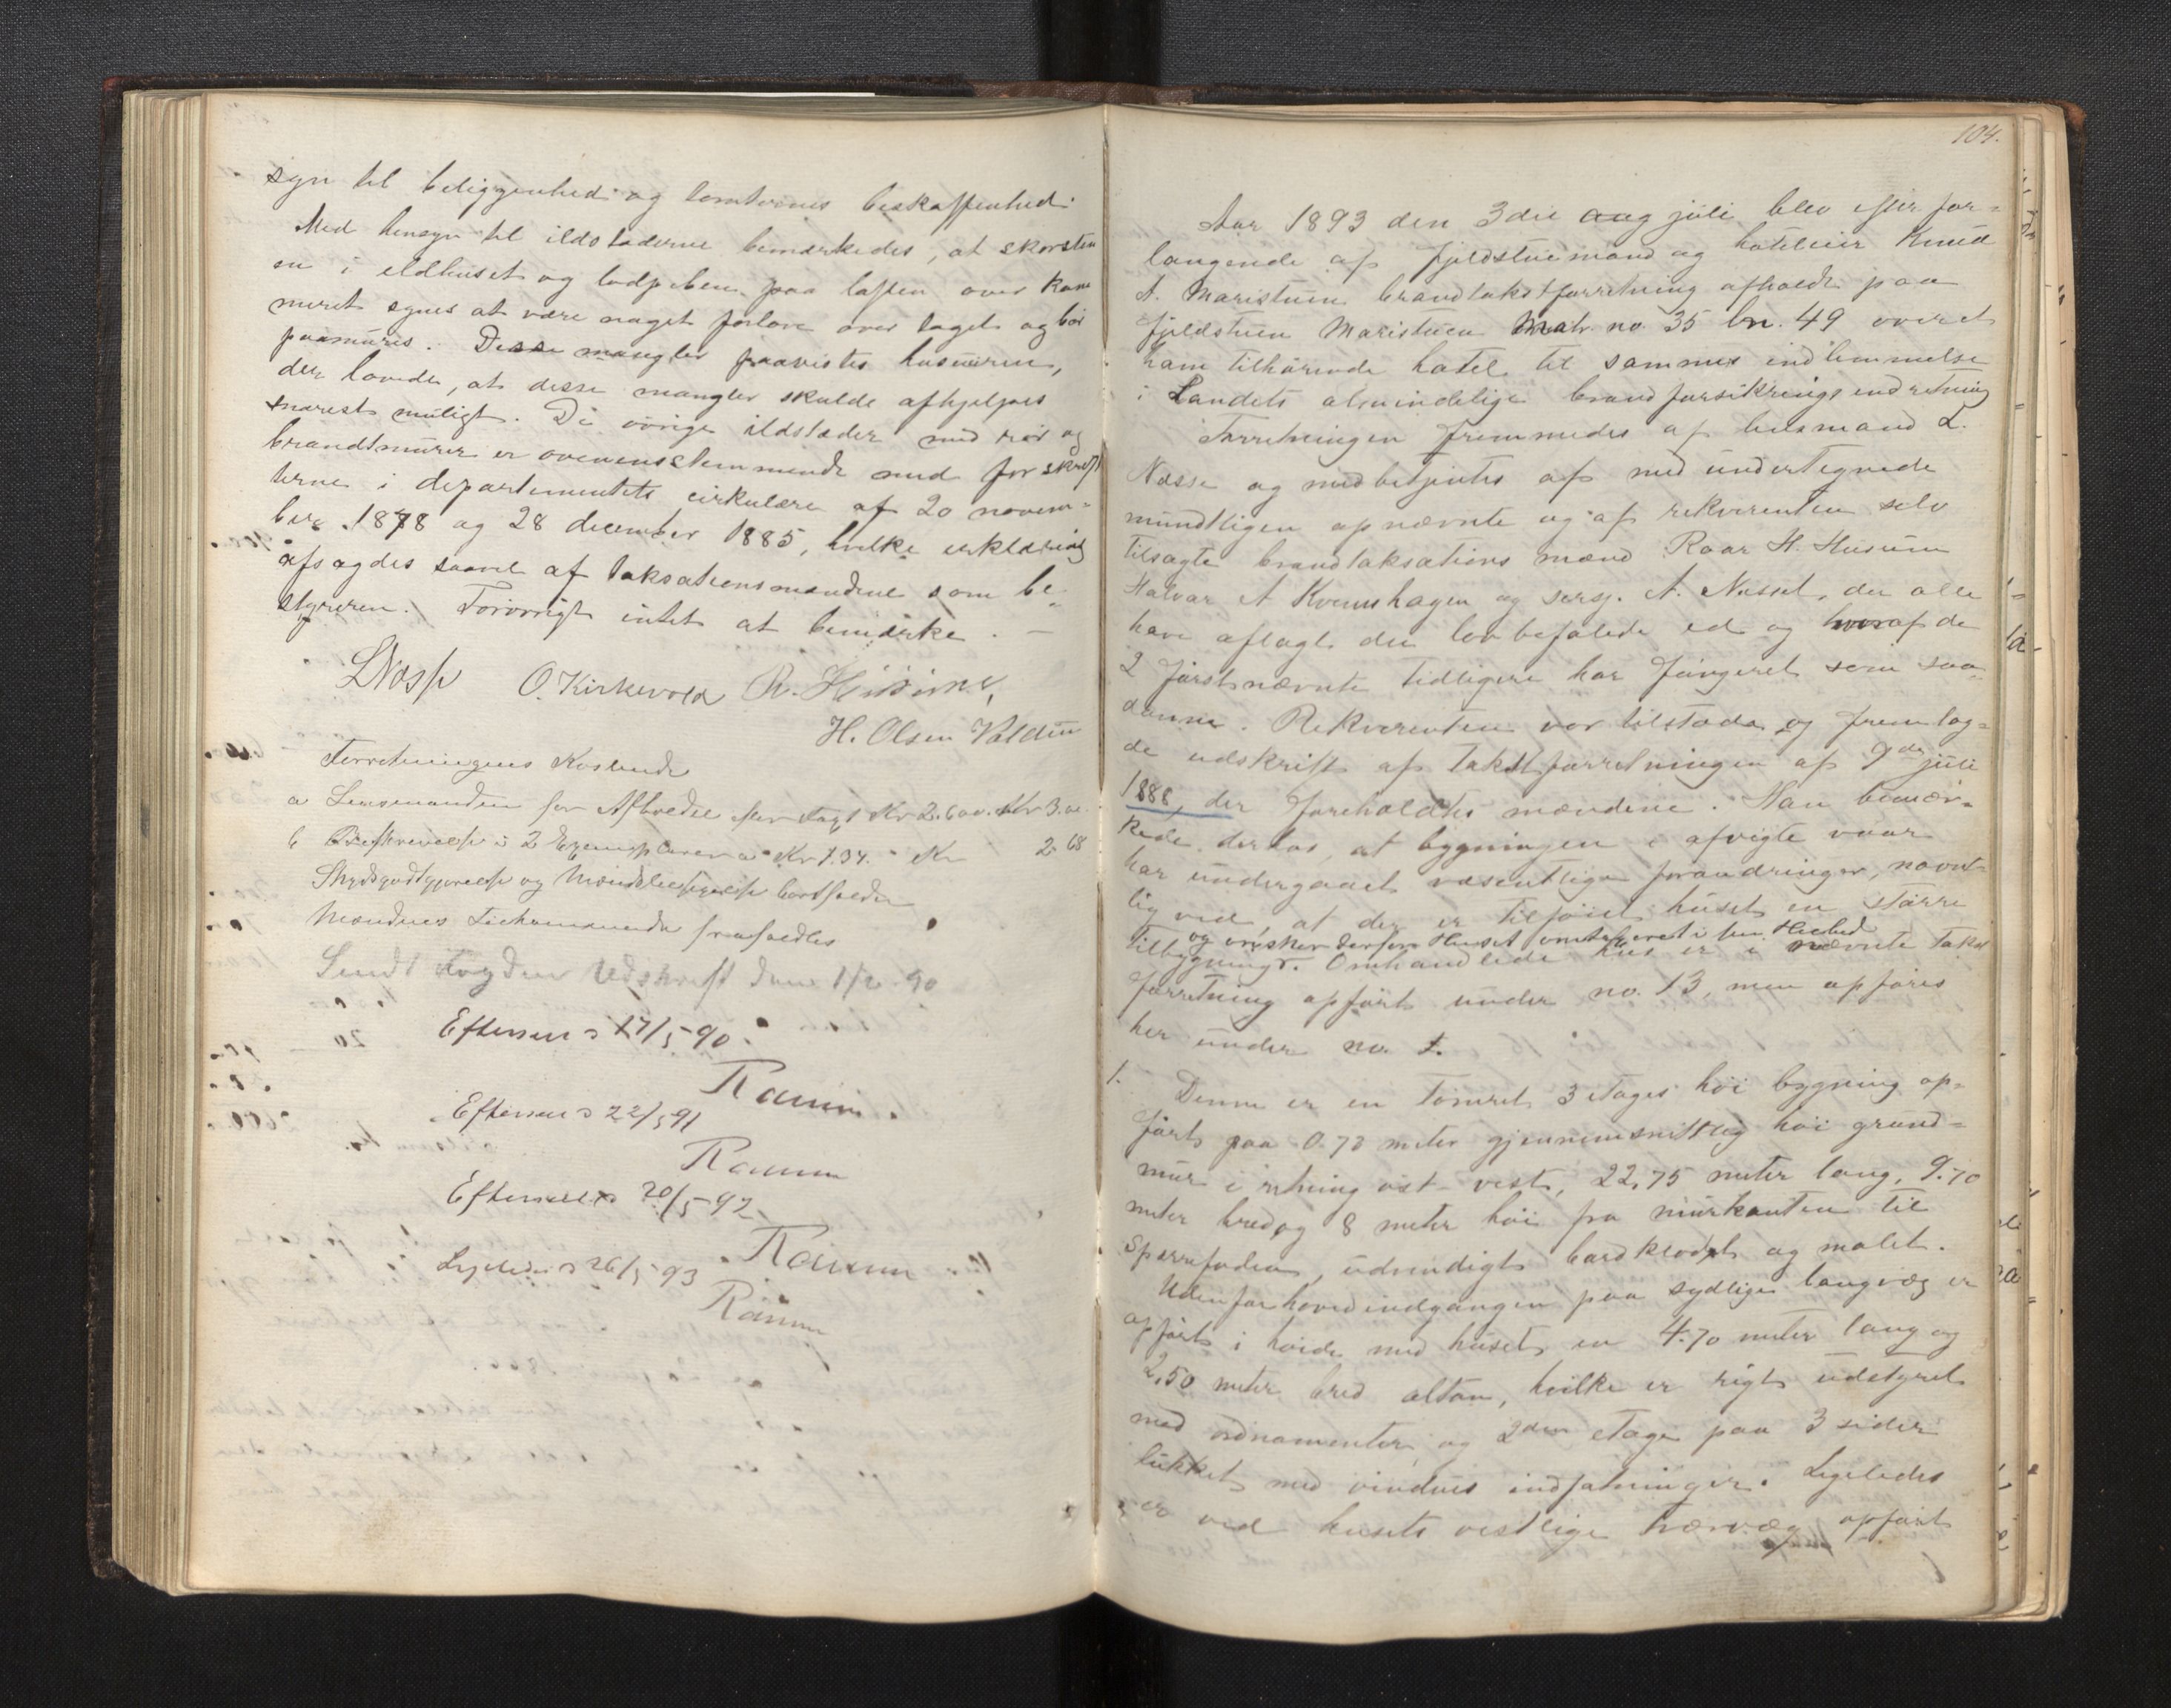 syn til beliggenhed og tomternes beskaffenhed.
Med hensyn til ildstederne bemærkedes, at skorsten
en i ildhuset og lodpiben paa loften over kam
meret synes at være noget forlave over taget og bør
paamures. Disse mangler paavistes huseieren,
der lovede, at disse mangler skulde afhjelpes
snarest muligt. De øvrige ildsteder med rør og
brandtmurer er overensstemmende med forskrif
terne i departementets cirkulære af 20 novem-
ber 1878 og 28 december 1885, hvilke erklæring
afsagdes saavel af taksationsmændene som be-
styreren. Forøvrigt intet at bemærke. —
LNæss O. Kirkevold R. Husum,
H. Olsen Voldum
Forretningens Kostende
a Lensmanden for Afholdelse efter Taxt Kr 2.600. Kr 3.00
b Beskrivelse i 2 Exemplarer a Kr 1.34. " Kr 2.68
Skydsgodtgjørelse og Mændstilsigelse bortfalder
Mændenes Tilkommende frafaldtes
Sendt Fogden Udskrift den 1/2 90
Efterseet 17/5 90.
Ramm
Efterseet 22/5 91
Ramm
Efterseet 20/5 92
Ramm
Ligeledes 26/5 93
Ramm
104.
Aar 1893 den 3die aug juli blev efter for-
langende af fjeldstuemand og hoteleier Knud
A. Maristuen brandtakstforretning afholdt paa
fjeldstuen Maristuen Matr. no. 35 bn. 49 over et
ham tilhørende hotel til sammes indlemmelse
i Landets almindelige brandforsikringsindretning
Forretningen fremmedes af lensmand L.
Næss og med betjentes af med undertegnede
mundtligen opnævnte og af rekvirenten selv
tilsagte brandtaksations mænd Roar H. Husum
Halvar A Kvemshagen og serg. A. Næsset, der alle
have aflagt den lovbefalede ed og hvoraf de
2 først nævnte tidligere har fungeret som saa-
danne. Rekvirenten var tilstede og fremlag-
de udskrift af takstforretningen af 9de juli
1888, der foreholdtes mændene. Han bemær-
kede derhos, at bygningen i afvigte vaar
har undergaaet væsentlige forandringer, navnt
lig ved at der er tilføiet huset en større
og ønsker derfor Huset omtakseret i sin Helhed
tilbygning. Omhandlede hus er i nævnte takst
forretning opført under no. 13, men opføres
her under no. 1.
1. Denne er en tømret 3 etages høi bygning op-
ført paa 0.73 meter gjennemsnittlig høi grund-
mur i retning øst-vest, 22,75 meter lang, 9.70
meter bred og 8 meter høi fra murkanten til
Sperrefoden, udvendigt bordklædt og malet.
Udenfor hovedindgangen paa sydlige langvæg er
opført i høide med huset en 4.70 meter lang og
2,50 meter bred altan, hvilke er rigt udstyret
med ordnamenter, og 2den etage paa 3 sider
lukket med vindues indfatninger. Ligeledes
er ved husets vestlige tværvæg opført